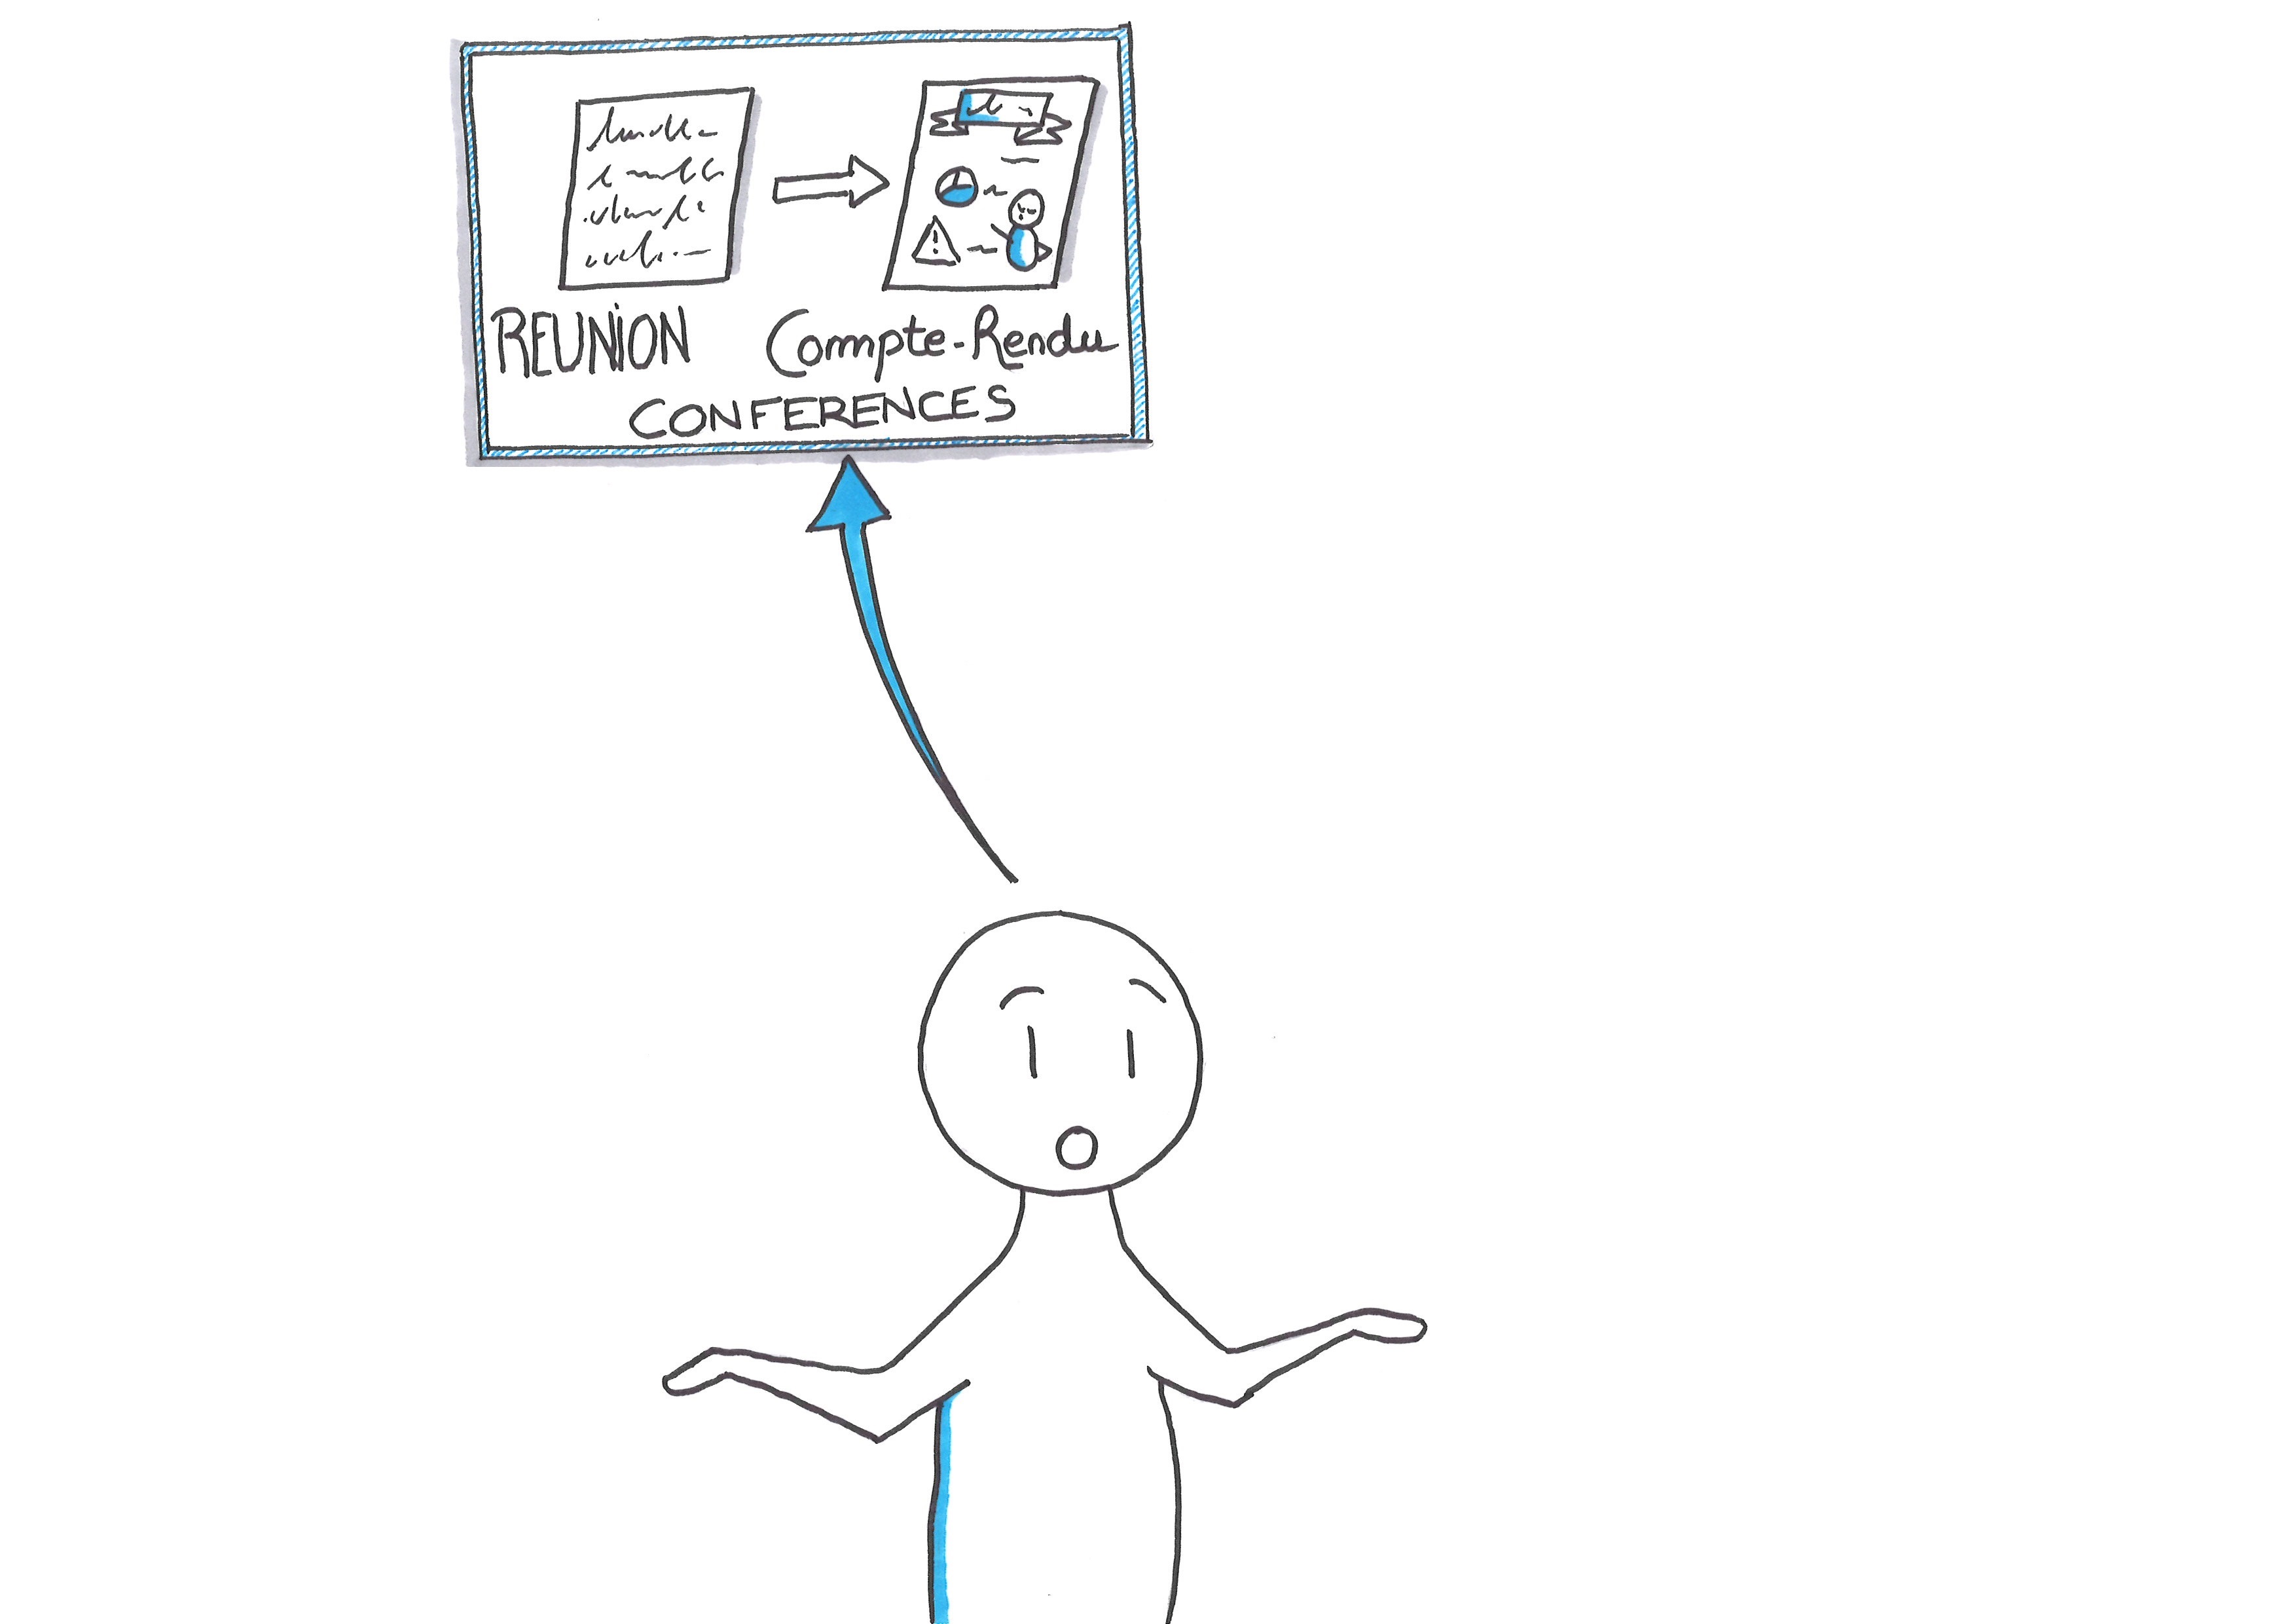 REUNiON Compte-Rendu
CONFERENCES